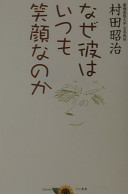 なぜ彼は
いつも
笑顔なのか
村田昭治